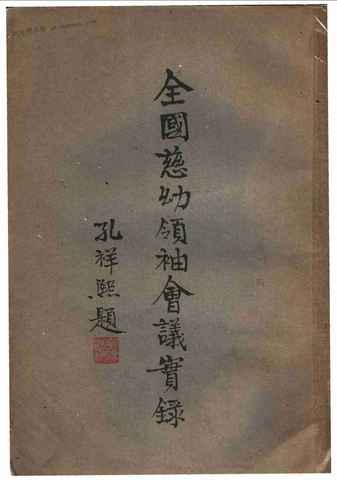 全國慈幼領袖會議實錄
孔祥熙題